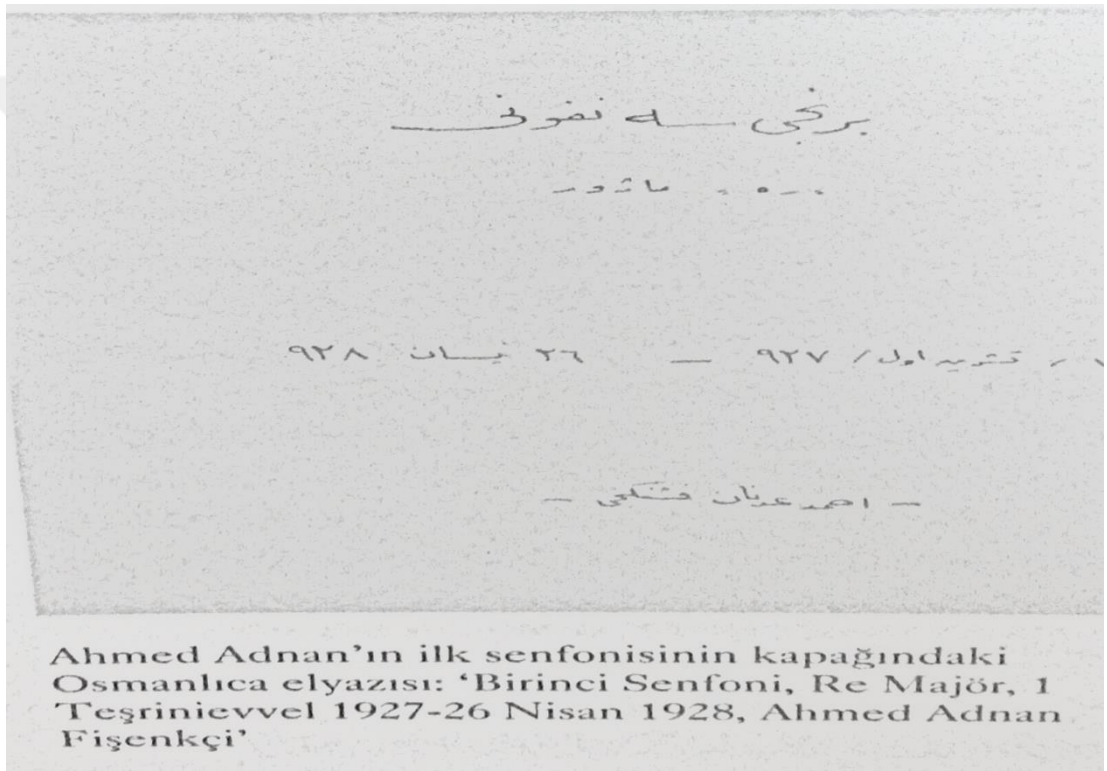 برنجی سه نفونی
ـ ره . ماژور
١ / تشرین اول / ٩٢٧ — ٢٦ نیسان ٩٢٨
— احمد عدنان فشنکجی —
Ahmed Adnan’ın ilk senfonisinin kapağındaki
Osmanlıca elyazısı: ‘Birinci Senfoni, Re Majör, 1
Teşrinievvel 1927-26 Nisan 1928, Ahmed Adnan
Fişenkçi’